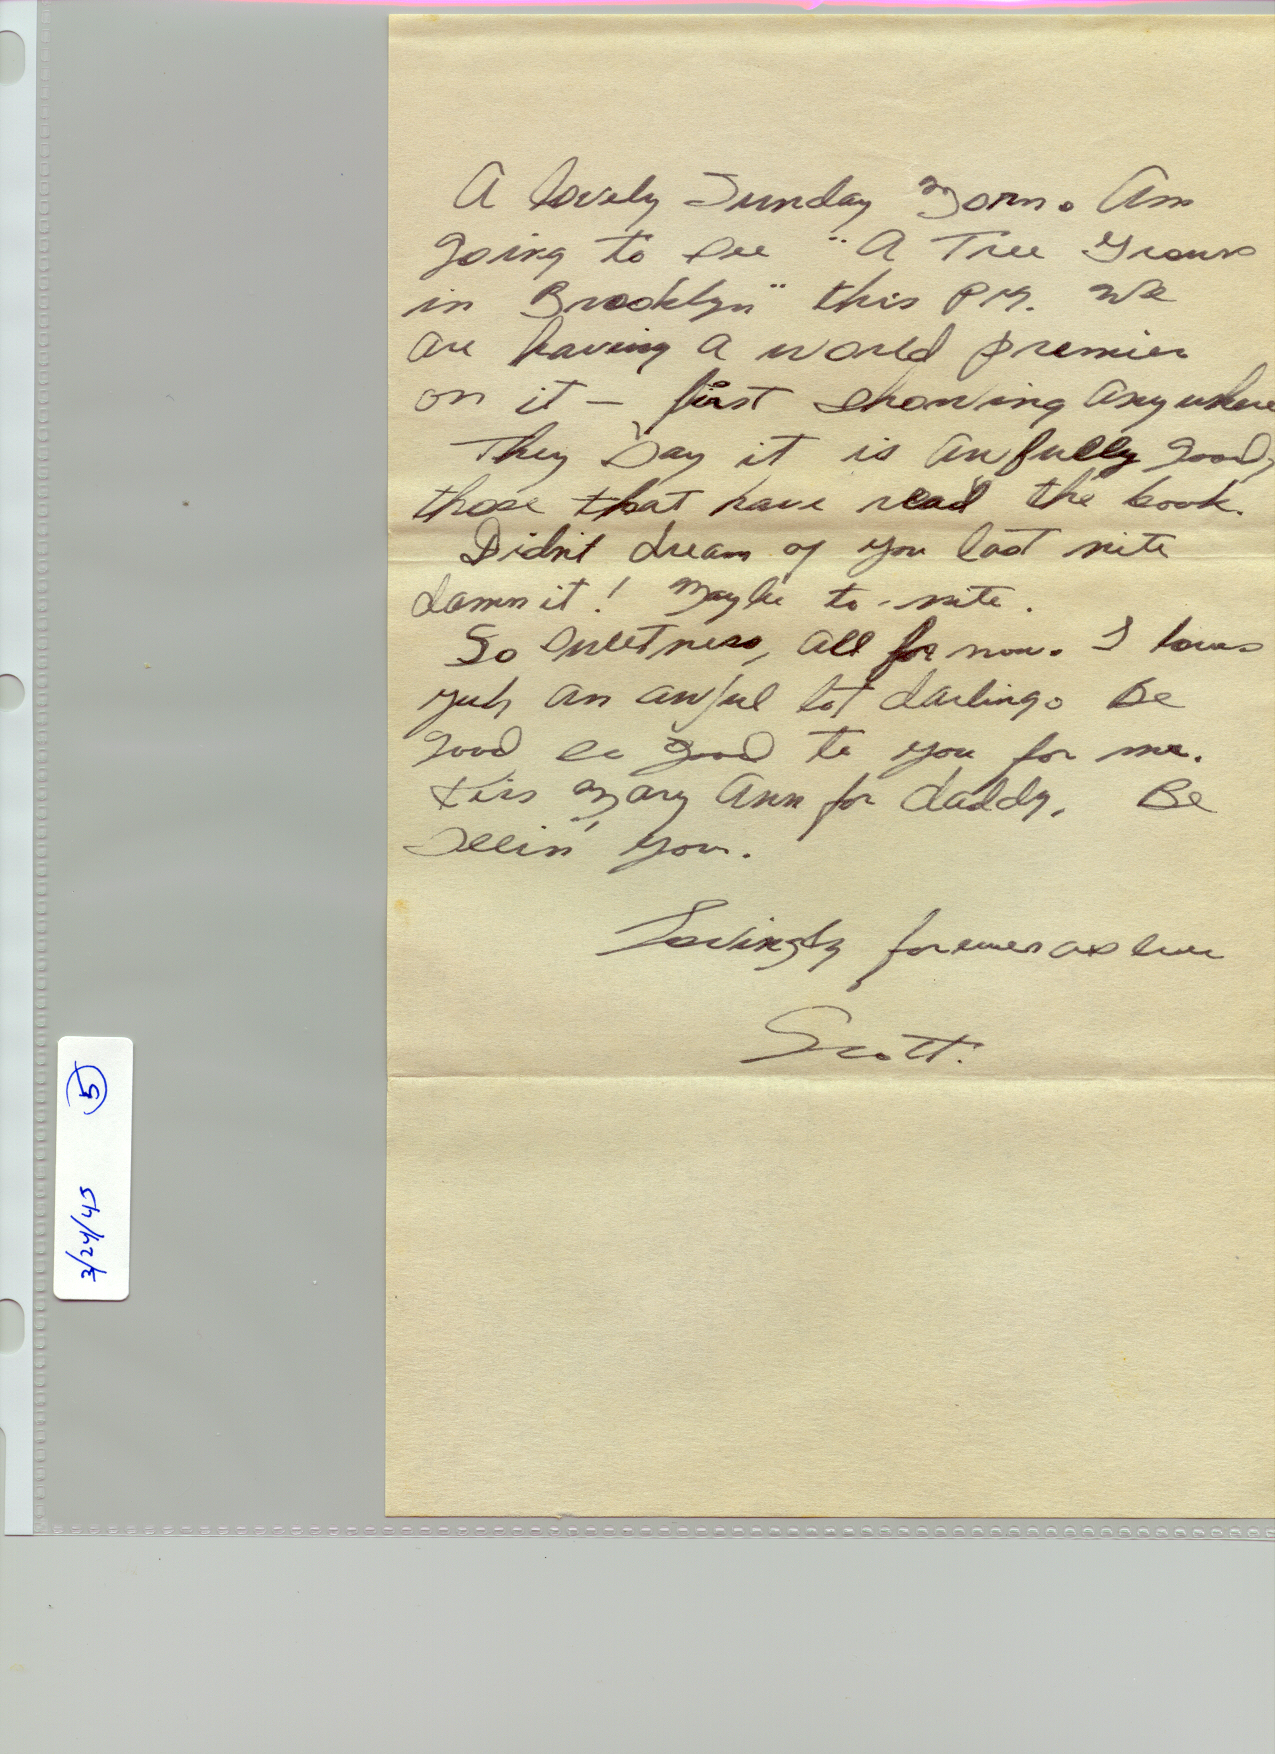 A lovely Sunday Morn. Am
going to see "A Tree Grows
in Brooklyn" this P.M. We
are having a world premier
on it - first showing anywhere
They say it is awfully good,
those that have read the book.
Didn't dream of you last nite
damn it! Maybe to-nite.
So sweetness, all for now. I loves
yuh an awful lot darling. Be
good & good to you for me.
Kiss Mary Ann for daddy. Be
seein' you.
Lovingly forever as ever
Scott.
3/24/45 5